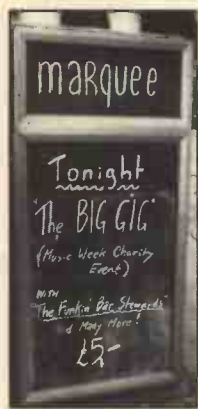 marquee
Tonight
"The BIG GIG"
(Music Week Charity
Event)
WITH
"The Funkin' Bar Stewards"
& Many More!
£5-